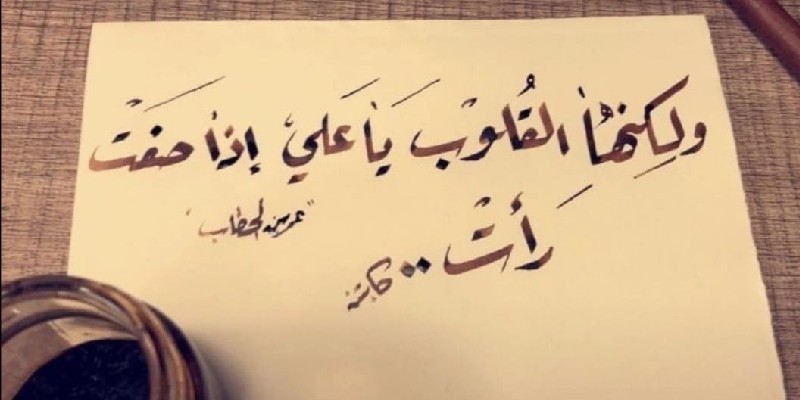 ولكِنهاُ القُلوْب يَا عَلي إذا صفَتْ
رَأتْ ..
"عمر بن الخطاب"